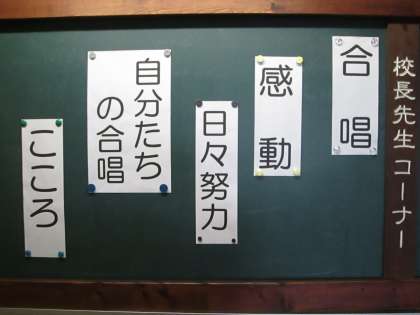 校長先生コーナー
合唱
感動
日々努力
自分たち
の合唱
こころ